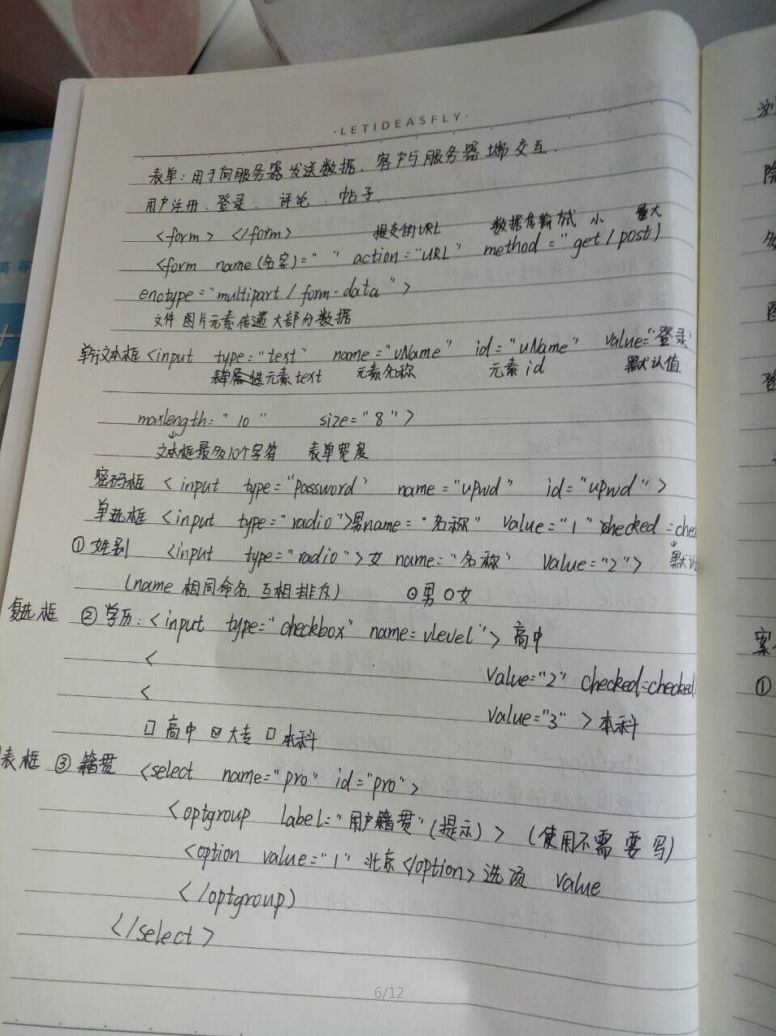 ·LETIDEASFLY·
表单：用于向服务器发送数据、客户与服务器端交互.
用户注册、登录、评论、帖子.
<form> </form> 提交的URL 数据传输方式 小 量大
<form name(名字)=" " action="URL" method="get/post)
enctype="multipart/form-data">
文件 图片元素传递大部分数据
单行文本框 <input type="text" name="uName" id="uName" value="登录
元素text 元素名称 元素id 默认值
maxlength="10" size="8">
文本框最多10个字符 表单宽度
密码框 <input type="password" name="upwd" id="upwd">
单选框 <input type="radio">男name="名称" value="1" checked=che
① 姓别 <input type="radio">女 name="名称" value="2"> 默认
(name 相同命名.互相排斥) ⊙男 O女
复选框 ② 学历:<input type="checkbox" name=vlevel"> 高中
< value="2" checked=checked
< value="3" >本科
口高中 ☑大专 口本科
表框 ③ 籍贯 <select name="pro" id="pro">
<optgroup label="用户籍贯"(提示)> (使用不需要写)
<option value="1" 北京</option> 选项 value
</optgroup)
</select>
6/12
浏
阴
多
图
登
案
①